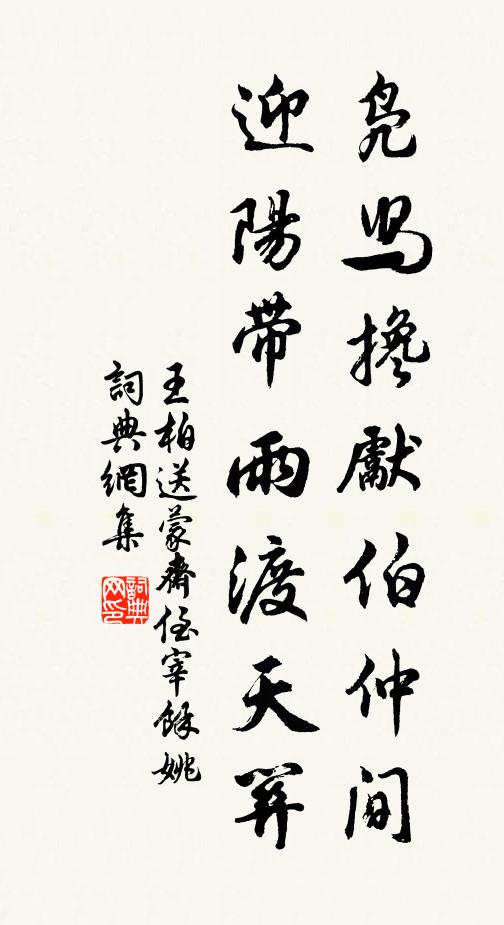 鳧舄攙獻伯仲間
迎陽帶雨渡天關
王柏送蒙齋侄宰餘姚
詞典網集
詞典网印